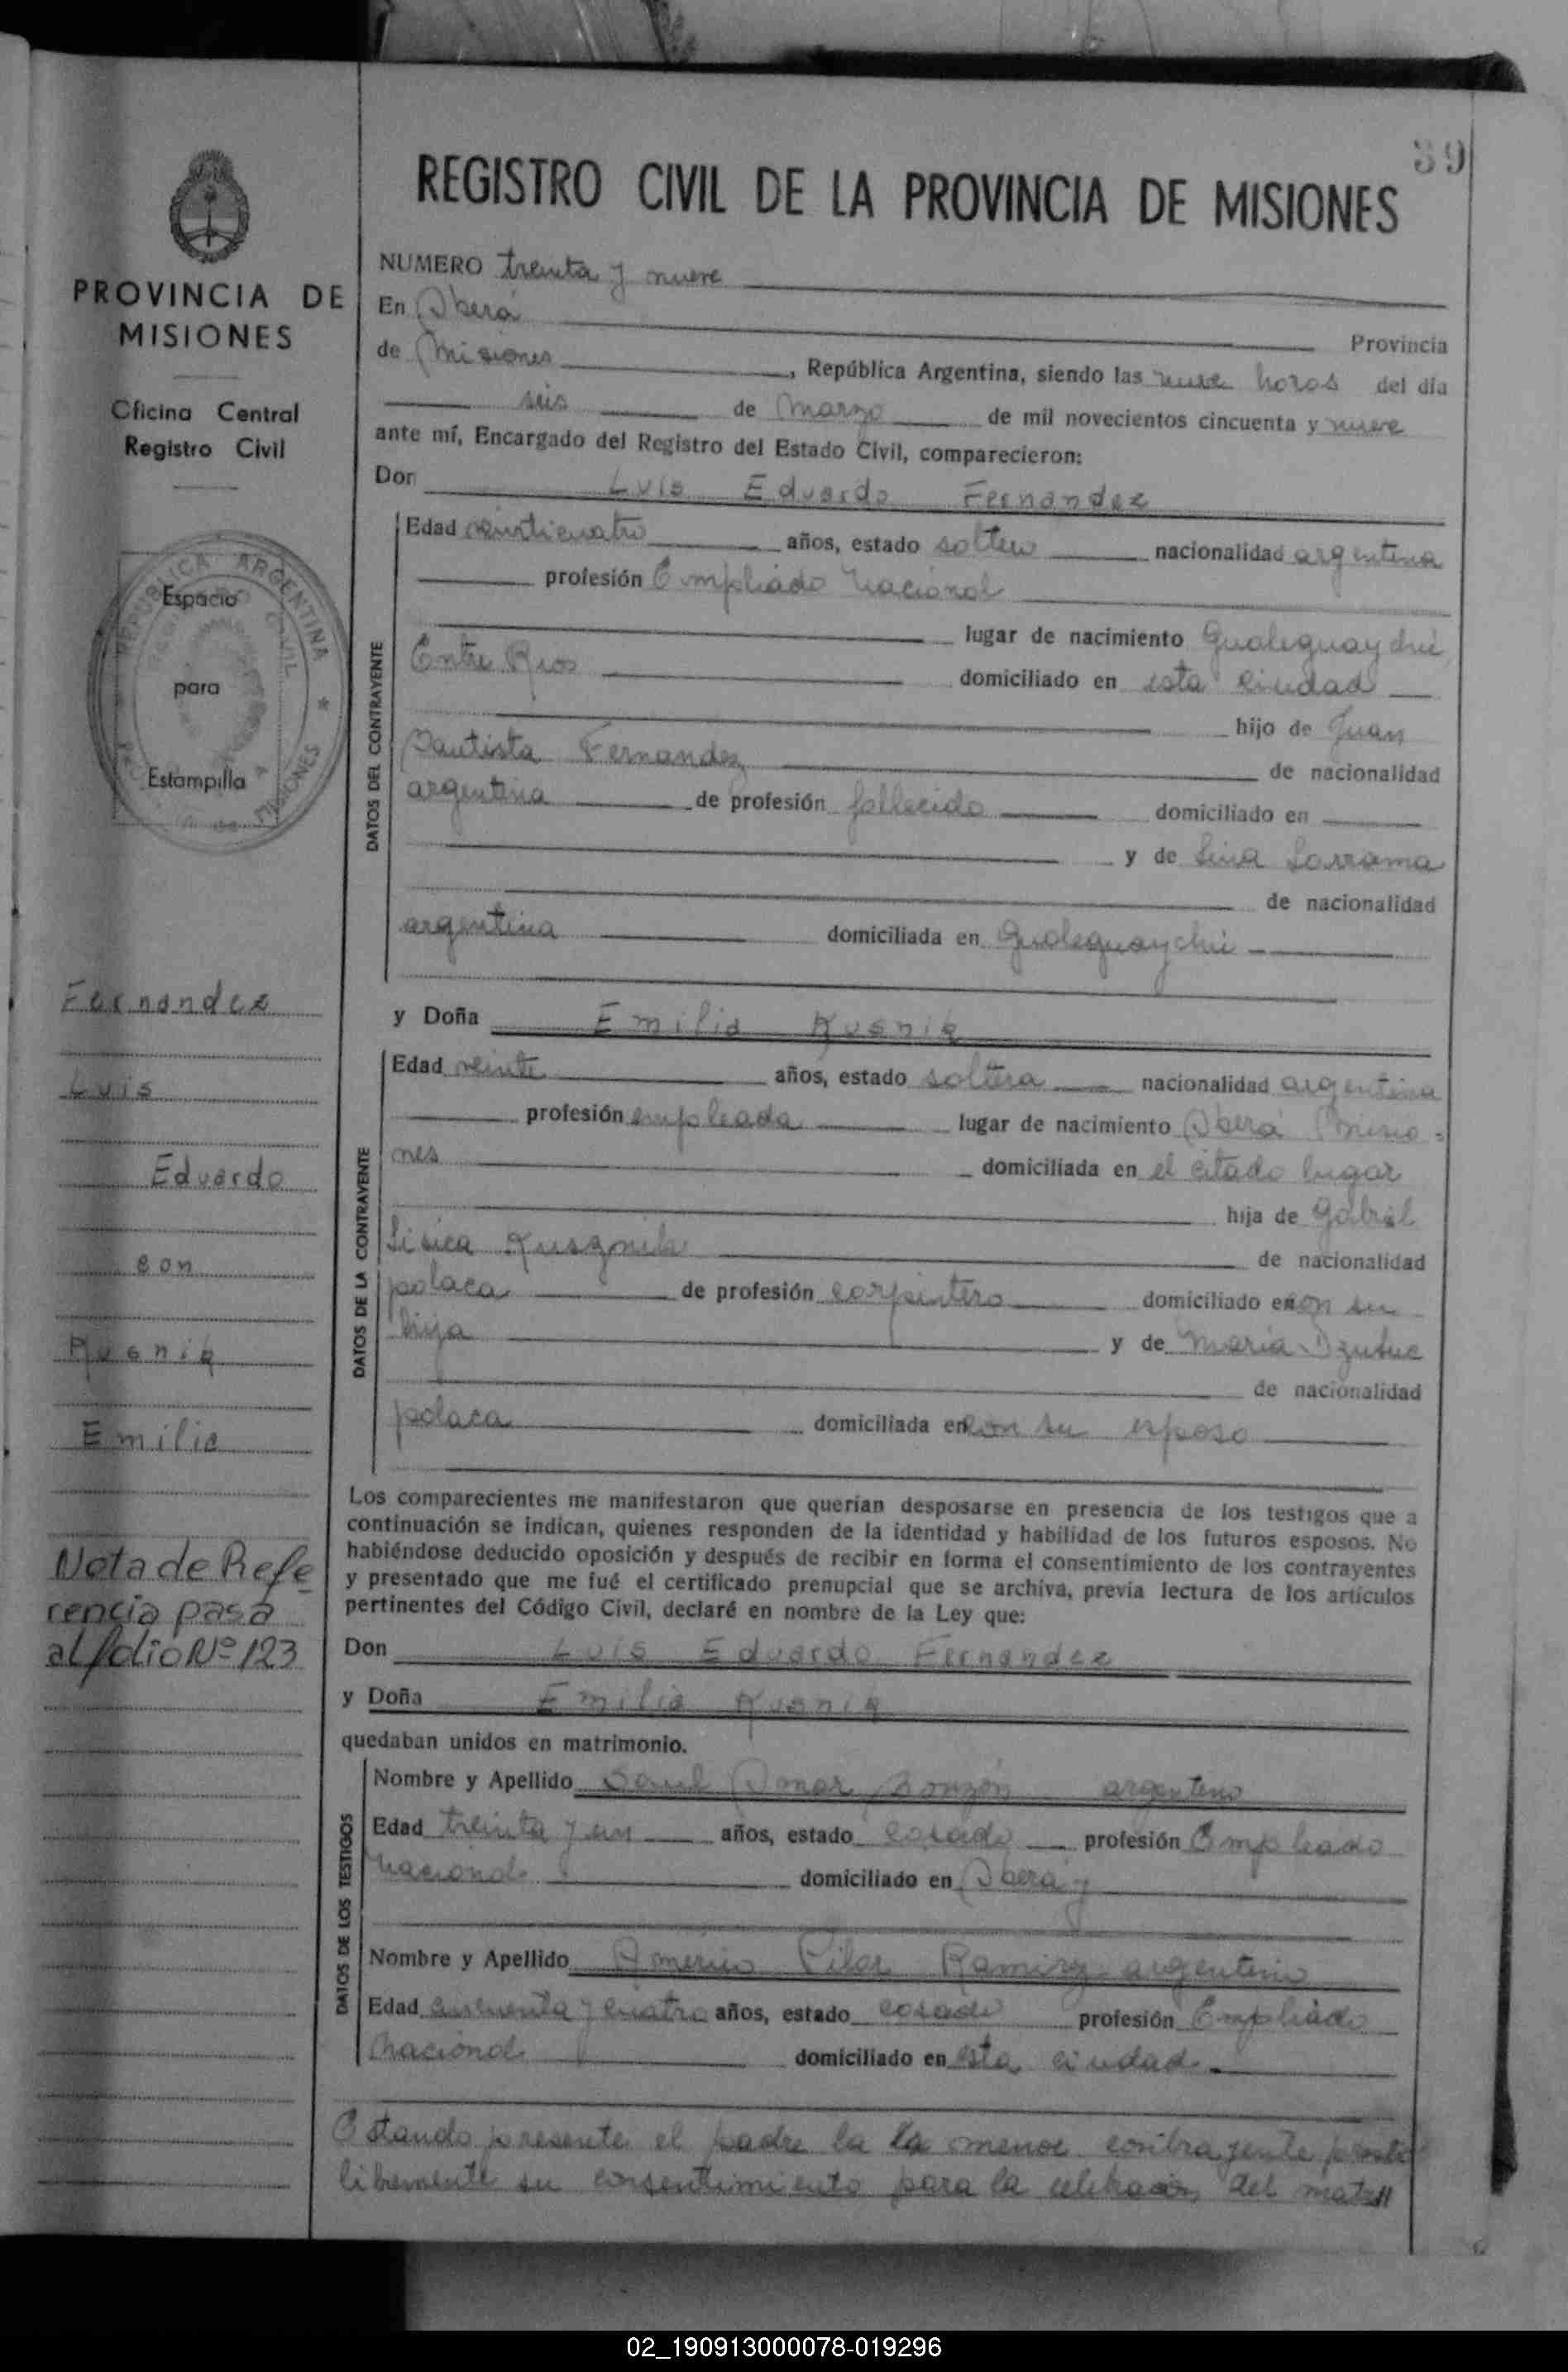 39
REGISTRO CIVIL DE LA PROVINCIA DE MISIONES
PROVINCIA DE
MISIONES
Oficina Central
Registro Civil
REPUBLICA ARGENTINA
Espacio
para
Estampilla
MISIONES
Fernandez
Luis
Eduardo
con
Kusnik
Emilia
Nota de Refe
rencia pasa
al folio Nº 123
NUMERO treinta y nueve
En Oberá
Provincia
de Misiones, República Argentina, siendo las nueve horas del día
seis de Marzo de mil novecientos cincuenta y nueve
ante mí, Encargado del Registro del Estado Civil, comparecieron:
Don Luis Eduardo Fernandez
DATOS DEL CONTRAYENTE
Edad veinticuatro años, estado soltero nacionalidad argentina
profesión Empleado Nacional
lugar de nacimiento Gualeguaychú
Entre Rios domiciliado en esta ciudad
hijo de Juan
Bautista Fernandez de nacionalidad
argentina de profesión fallecido domiciliado en
y de Lina
de nacionalidad
argentina domiciliada en Gualeguaychú
y Doña Emilia Kusnik
DATOS DE LA CONTRAYENTE
Edad veinte años, estado soltera nacionalidad argentina
profesión empleada lugar de nacimiento Oberá Misio=
nes domiciliada en el citado lugar
hija de Gabriel
de nacionalidad
polaca de profesión carpintero domiciliado en con su
hija y de Maria
de nacionalidad
polaca domiciliada en con su esposo
Los comparecientes me manifestaron que querían desposarse en presencia de los testigos que a
continuación se indican, quienes responden de la identidad y habilidad de los futuros esposos. No
habiéndose deducido oposición y después de recibir en forma el consentimiento de los contrayentes
y presentado que me fué el certificado prenupcial que se archiva, previa lectura de los artículos
pertinentes del Código Civil, declaré en nombre de la Ley que:
Don Luis Eduardo Fernandez
y Doña Emilia Kusnik
quedaban unidos en matrimonio.
DATOS DE LOS TESTIGOS
Nombre y Apellido Omar argentino
Edad treinta y un años, estado casado profesión Empleado
Nacional domiciliado en Oberá y
Nombre y Apellido Americo Pilar Ramirez argentino
Edad cincuenta y cuatro años, estado casado profesión Empleado
Nacional domiciliado en esta ciudad.
Estando presente el padre la la menor contrayente
libremente su consentimiento para la celebración del
02_190913000078-019296